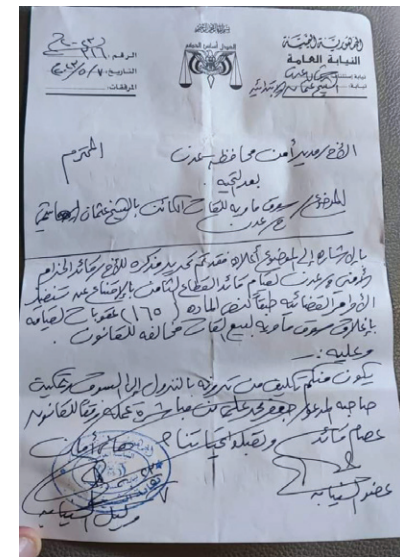 الجمهورية اليمنية
النيابة العامة
نيابة استئناف
نيابة: الشيخ عثمان الابتدائية
العدل أساس الحكم
الرقم:
التاريخ:
المرفقات:
الأخ/ مدير أمن محافظة عدن المحترم
بعد التحية
الموضوع/ سوق ماوية للقات الكائن بالشيخ عثمان
م/ عدن
بالإشارة إلى الموضوع أعلاه فقد تم تحرير مذكرة للأخ/ قائد الحزام
الأمني م/ عدن لقيام قائد القطاع الثامن بالإمتناع عن تنفيذ
الأوامر القضائية طبقاً لنص المادة (١٦٥) عقوبات لقيامه
بإغلاق سوق ماوية لبيع القات مخالفه للقانون.
وعليه :-
يكون منكم تكليف من ترونه بالنزول إلى السوق وتمكين
صاحبه المدعو علي من عمله وفقاً للقانون
عصام قائد وتقبلوا تحياتنا
عضو النيابة
وكيل النيابة